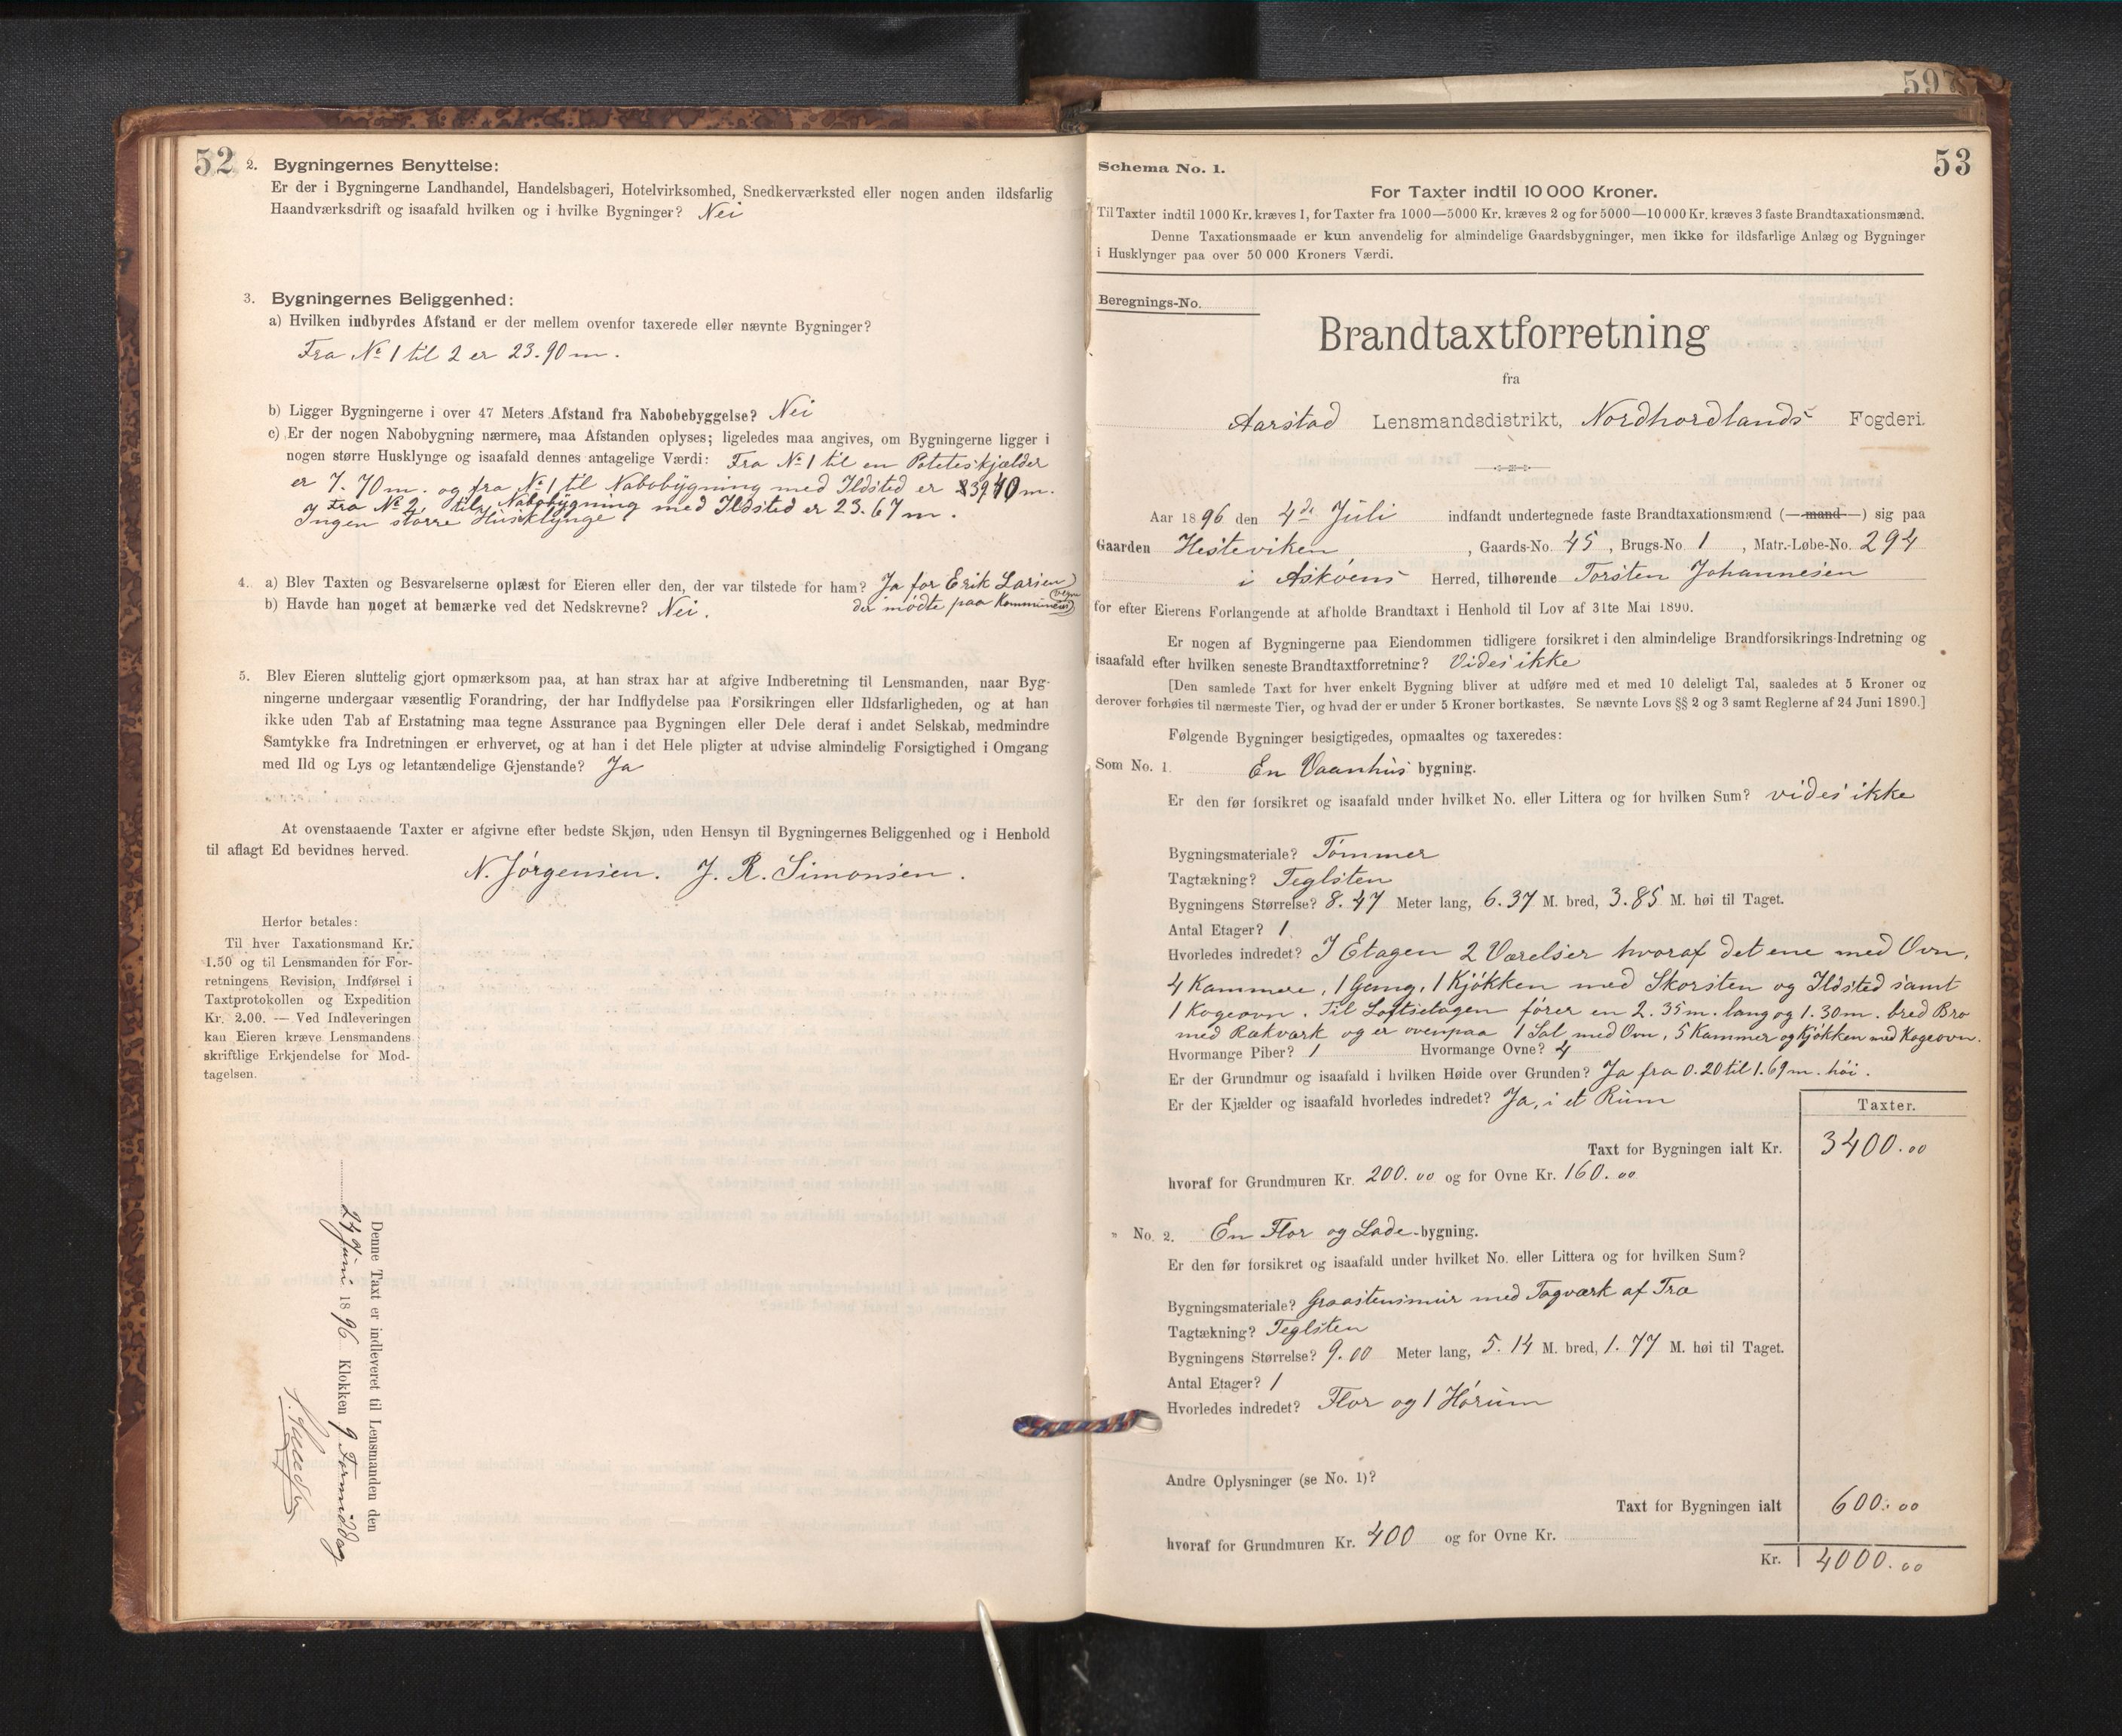 52
2. Bygningernes Benyttelse:
Er der i Bygningerne Landhandel, Handelsbageri, Hotelvirksomhed, Snedkerværksted eller nogen anden ildsfarlig
Haandværksdrift og isaafald hvilken og i hvilke Bygninger? Nei
3. Bygningernes Beliggenhed:
a) Hvilken indbyrdes Afstand er der mellem ovenfor taxerede eller nævnte Bygninger?
Fra No 1 til 2 er 23.90 m.
b) Ligger Bygningerne i over 47 Meters Afstand fra Nabobebyggelse? Nei
c) Er der nogen Nabobygning nærmere, maa Afstanden oplyses; ligeledes maa angives, om Bygningerne ligger i
nogen større Husklynge og isaafald dennes antagelige Værdi: Fra No 1 til en Poteteskjælder
er 7.70 m. og fra No 1 til Nabobygning med Ildsted er m.
og Fra No 2 til Nabobygning med Ildsted er 23.67 m.
Ingen större Husklynge
4. a) Blev Taxten og Besvarelserne oplæst for Eieren eller den, der var tilstede for ham? Ja for Erik Larsen
der mødte paa Kommunens Vegne
b) Havde han noget at bemærke ved det Nedskrevne? Nei.
5. Blev Eieren sluttelig gjort opmærksom paa, at han strax har at afgive Indberetning til Lensmanden, naar Byg-
ningerne undergaar væsentlig Forandring, der har Indflydelse paa Forsikringen eller Ildsfarligheden, og at han
ikke uden Tab af Erstatning maa tegne Assurance paa Bygningen eller Dele deraf i andet Selskab, medmindre
Samtykke fra Indretningen er erhvervet, og at han i det Hele pligter at udvise almindelig Forsigtighed i Omgang
med Ild og Lys og letantændelige Gjenstande? Ja
At ovenstaaende Taxter er afgivne efter bedste Skjøn, uden Hensyn til Bygningernes Beliggenhed og i Henhold
til aflagt Ed bevidnes herved.
N. Jörgensen. J. R. Simonsen.
Herfor betales:
Til hver Taxationsmand Kr.
1.50 og til Lensmanden for For-
retningens Revision, Indførsel i
Taxtprotokollen og Expedition
Kr. 2.00. — Ved Indleveringen
kan Eieren kræve Lensmandens
skriftlige Erkjendelse for Mod-
tagelsen.
Denne Taxt er indleveret til Lensmanden den
1896 Klokken 9 Formiddag
597
53
Schema No. 1.
For Taxter indtil 10 000 Kroner.
Til Taxter indtil 1000 Kr. kræves 1, for Taxter fra 1000—5000 Kr. kræves 2 og for 5000—10000 Kr. kræves 3 faste Brandtaxationsmænd.
Denne Taxationsmaade er kun anvendelig for almindelige Gaardsbygninger, men ikke for ildsfarlige Anlæg og Bygninger
i Husklynger paa over 50 000 Kroners Værdi.
Beregnings-No.
Brandtaxtforretning
fra
Aarstad Lensmandsdistrikt, Nordhordlands Fogderi.
Aar 1896 den 4de Juli indfandt undertegnede faste Brandtaxationsmænd (—mand—) sig paa
Gaarden Hesteviken, Gaards-No. 45, Brugs-No. 1, Matr.-Løbe-No. 294
i Asköens Herred, tilhørende Torsten Johannesen
for efter Eierens Forlangende at afholde Brandtaxt i Henhold til Lov af 31te Mai 1890.
Er nogen af Bygningerne paa Eiendommen tidligere forsikret i den almindelige Brandforsikrings-Indretning og
isaafald efter hvilken seneste Brandtaxtforretning? Vides ikke
[Den samlede Taxt for hver enkelt Bygning bliver at udføre med et med 10 deleligt Tal, saaledes at 5 Kroner og
derover forhøies til nærmeste Tier, og hvad der er under 5 Kroner bortkastes. Se nævnte Lovs §§ 2 og 3 samt Reglerne af 24 Juni 1890.]
Følgende Bygninger besigtigedes, opmaaltes og taxeredes:
Som No. 1. En Vaanhus bygning.
Er den før forsikret og isaafald under hvilket No. eller Littera og for hvilken Sum? vides ikke
Bygningsmateriale? Tömmer
Tagtækning? Teglsten
Bygningens Størrelse? 8.47 Meter lang, 6.37 M. bred, 3.85 M. høi til Taget.
Antal Etager? 1
Hvorledes indredet? I Etagen 2 Værelser hvoraf det ene med Ovn,
4 Kammere, 1 Gang, 1 Kjökken med Skorsten og Ildsted samt
1 Kogeovn. Til Loftsetagen förer en 2.35 m. lang og 1.30 m. bred Bro
med Rækværk og er ovenpaa 1 Sal med Ovn, 5 Kammer og Kjökken med Kogeovn.
Hvormange Piber? 1 Hvormange Ovne? 4
Er der Grundmur og isaafald i hvilken Høide over Grunden? Ja fra 0.20 til 1.69 m. höi.
Er der Kjælder og isaafald hvorledes indredet? Ja, i et Rum
Taxter.
Taxt for Bygningen ialt Kr. 3400.00
hvoraf for Grundmuren Kr. 200.00 og for Ovne Kr. 160.00
" No. 2. En Flor og Lade-bygning.
Er den før forsikret og isaafald under hvilket No. eller Littera og for hvilken Sum?
Bygningsmateriale? Graastensmur med Tagværk af Træ
Tagtækning? Teglsten
Bygningens Størrelse? 9.00 Meter lang, 5.14 M. bred, 1.77 M. høi til Taget.
Antal Etager? 1
Hvorledes indredet? Flor og 1 Hörum
Andre Oplysninger (se No. 1)?
Taxt for Bygningen ialt 600.00
hvoraf for Grundmuren Kr. 400 og for Ovne Kr.
Kr. 4000.00